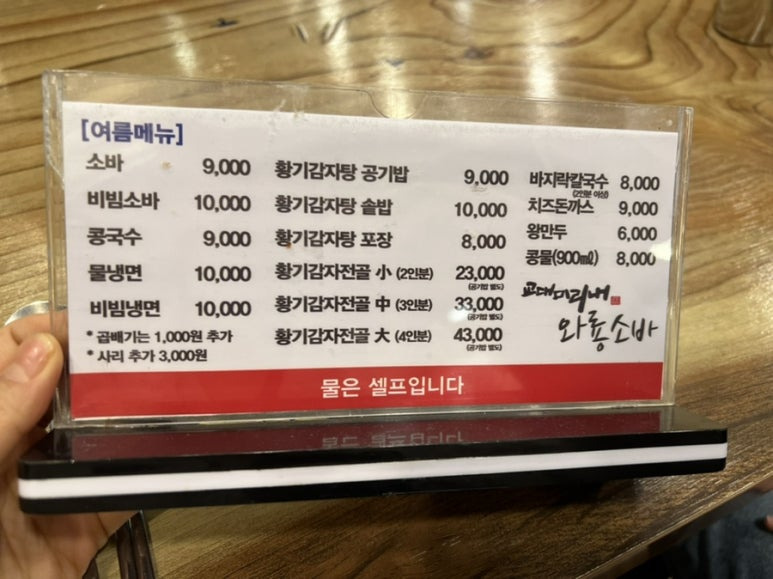 [여름메뉴]
소바 9,000
비빔소바 10,000
콩국수 9,000
물냉면 10,000
비빔냉면 10,000
* 곱배기는 1,000원 추가
* 사리 추가 3,000원
황기감자탕 공기밥 9,000
황기감자탕 솥밥 10,000
황기감자탕 포장 8,000
황기감자전골 小 (2인분) 23,000
(공기밥 별도)
황기감자전골 中 (3인분) 33,000
(공기밥 별도)
황기감자전골 大 (4인분) 43,000
(공기밥 별도)
바지락칼국수 8,000
(2인분 이상)
치즈돈까스 9,000
왕만두 6,000
콩물(900㎖) 8,000
교대미리내
와룡소바
물은 셀프입니다